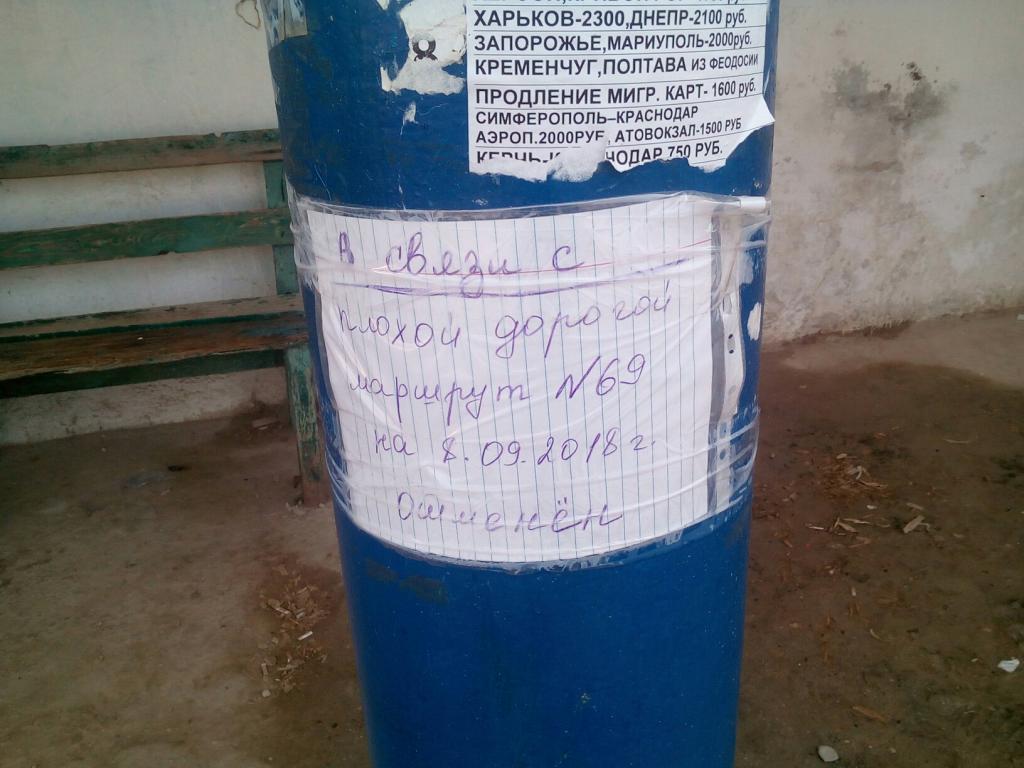 ХАРЬКОВ-2300,ДНЕПР-2100 руб.
ЗАПОРОЖЬЕ,МАРИУПОЛЬ-2000руб.
КРЕМЕНЧУГ,ПОЛТАВА ИЗ ФЕОДОСИИ
ПРОДЛЕНИЕ МИГР. КАРТ- 1600 руб.
СИМФЕРОПОЛЬ–КРАСНОДАР
АЭРОП.2000РУБ, АТОВОКЗАЛ-1500 РУБ
750 РУБ.
В связи с
плохой дорогой
маршрут №69
на 8.09.2018 г.
Отменён